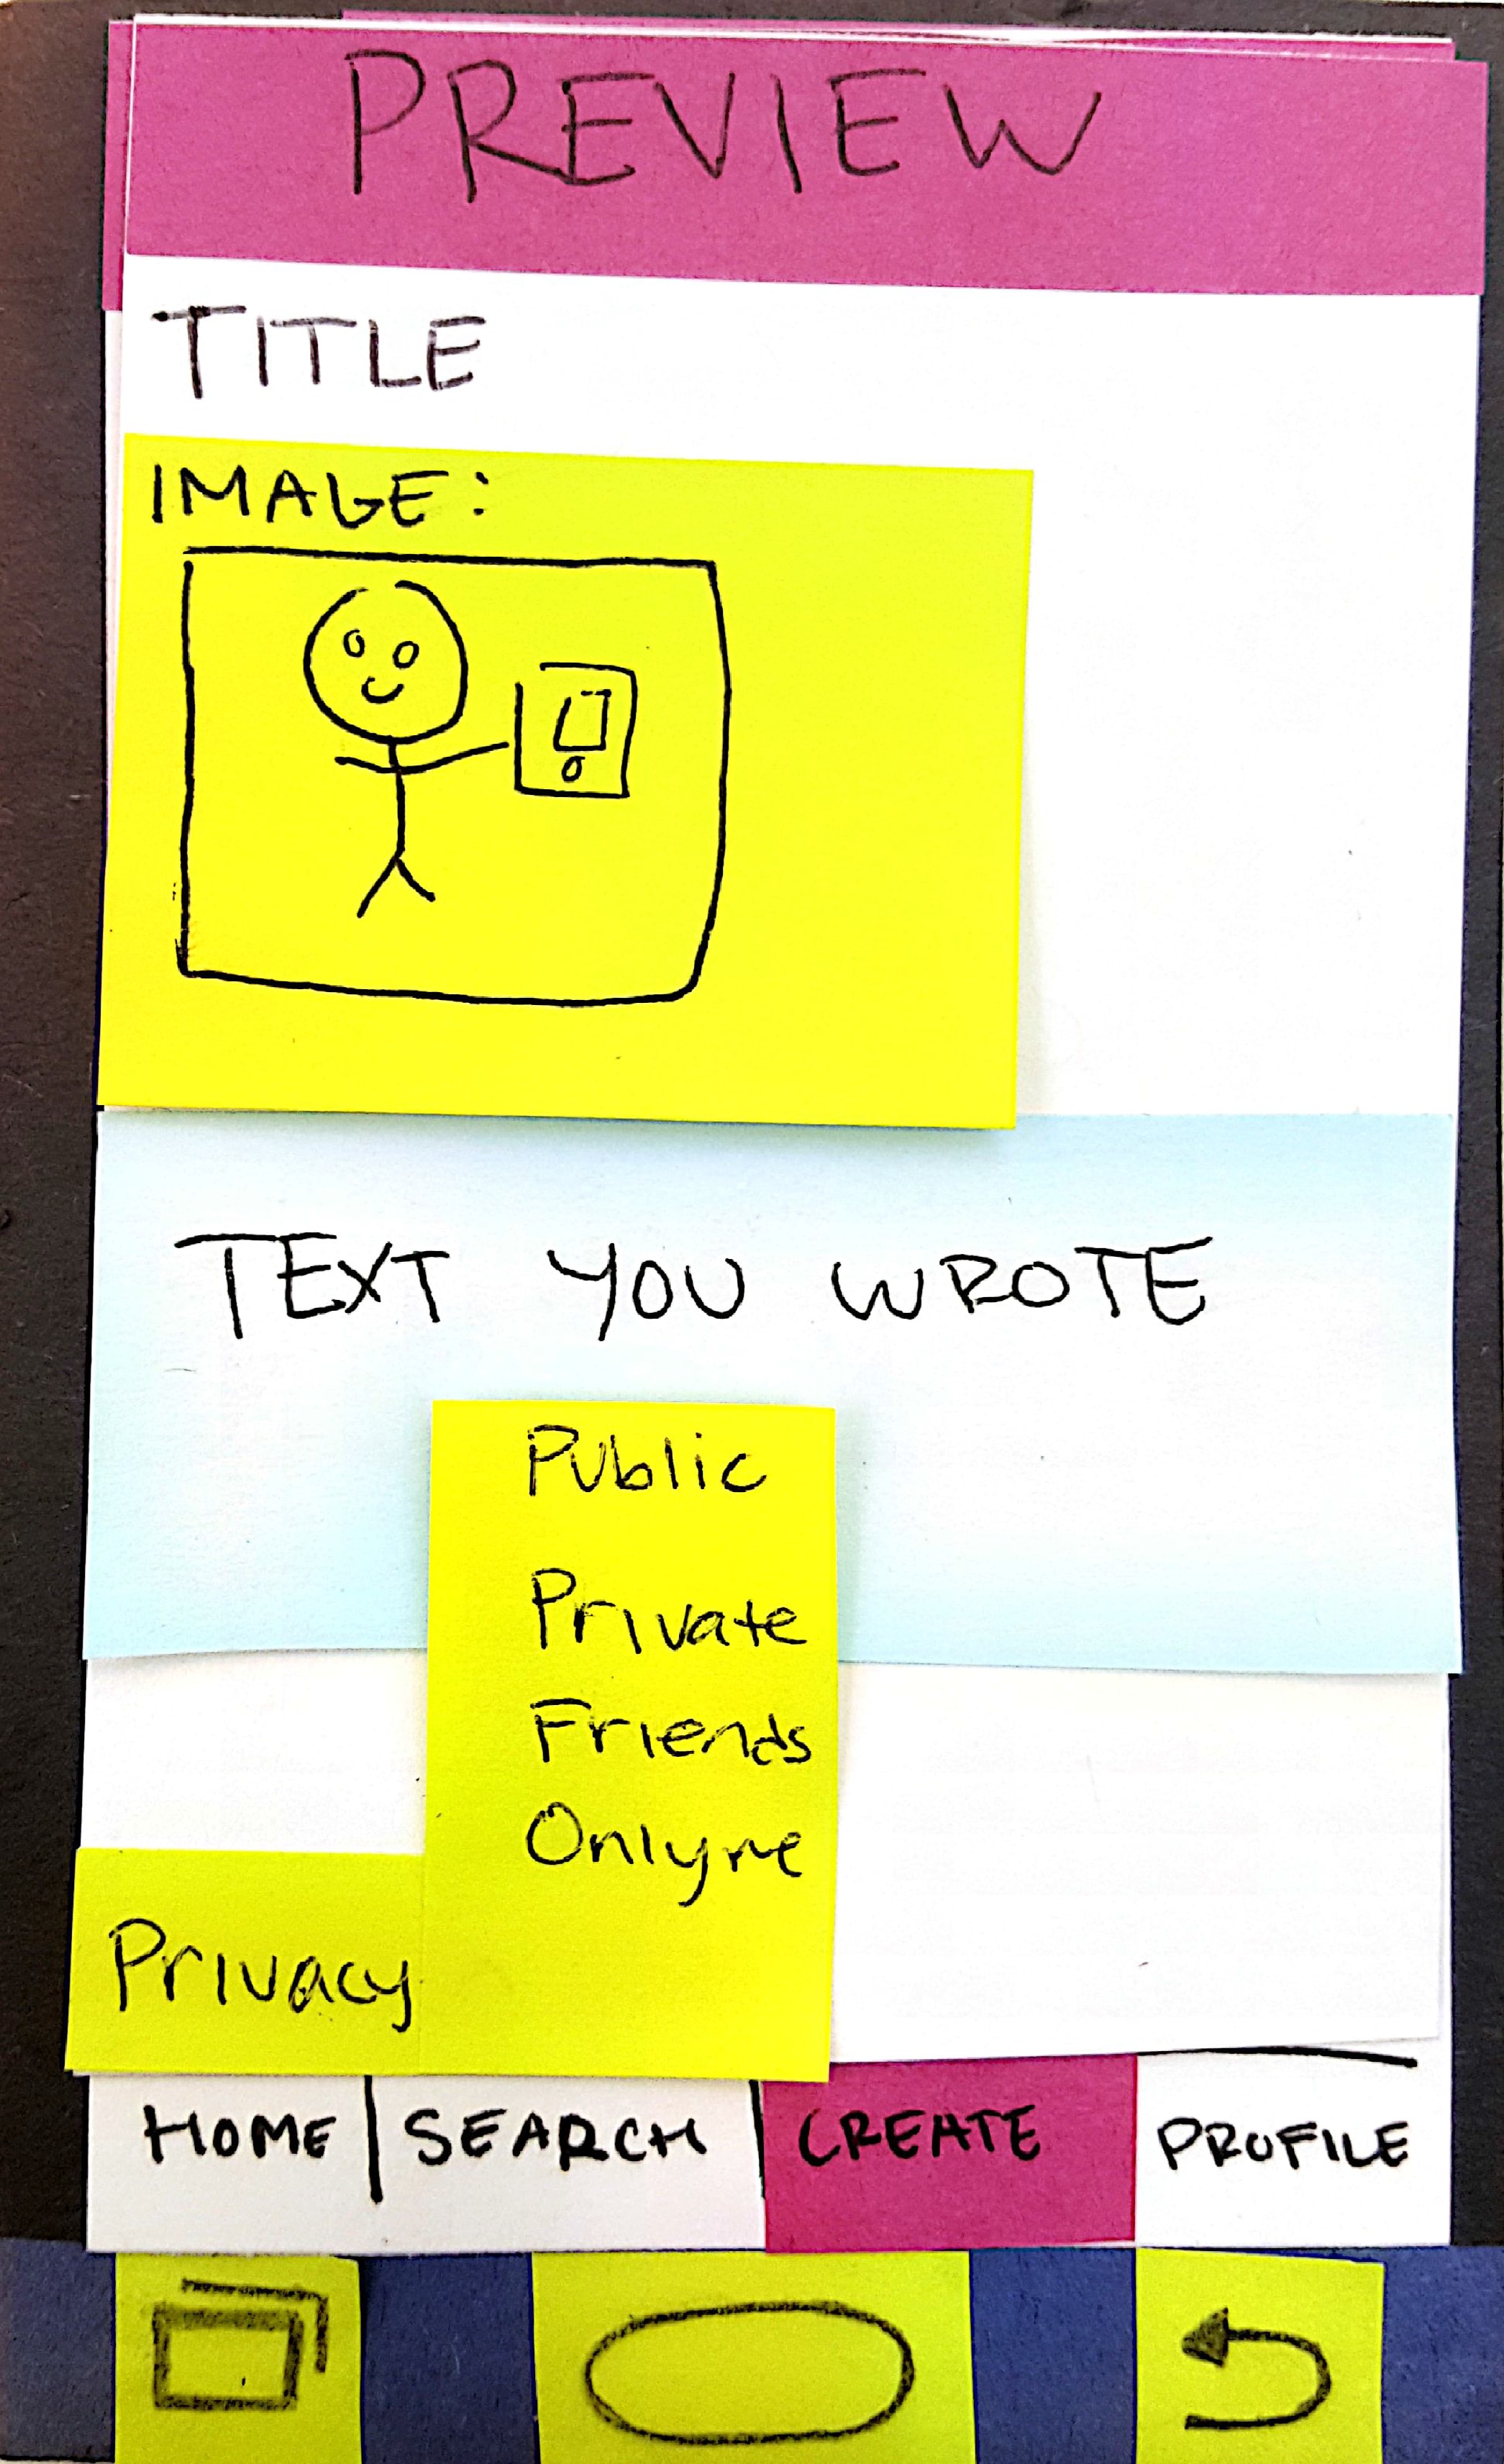 PREVIEW
TITLE
IMAGE:
TEXT YOU WROTE
Public
Private
Friends
Only me
Privacy
HOME SEARCH CREATE PROFILE